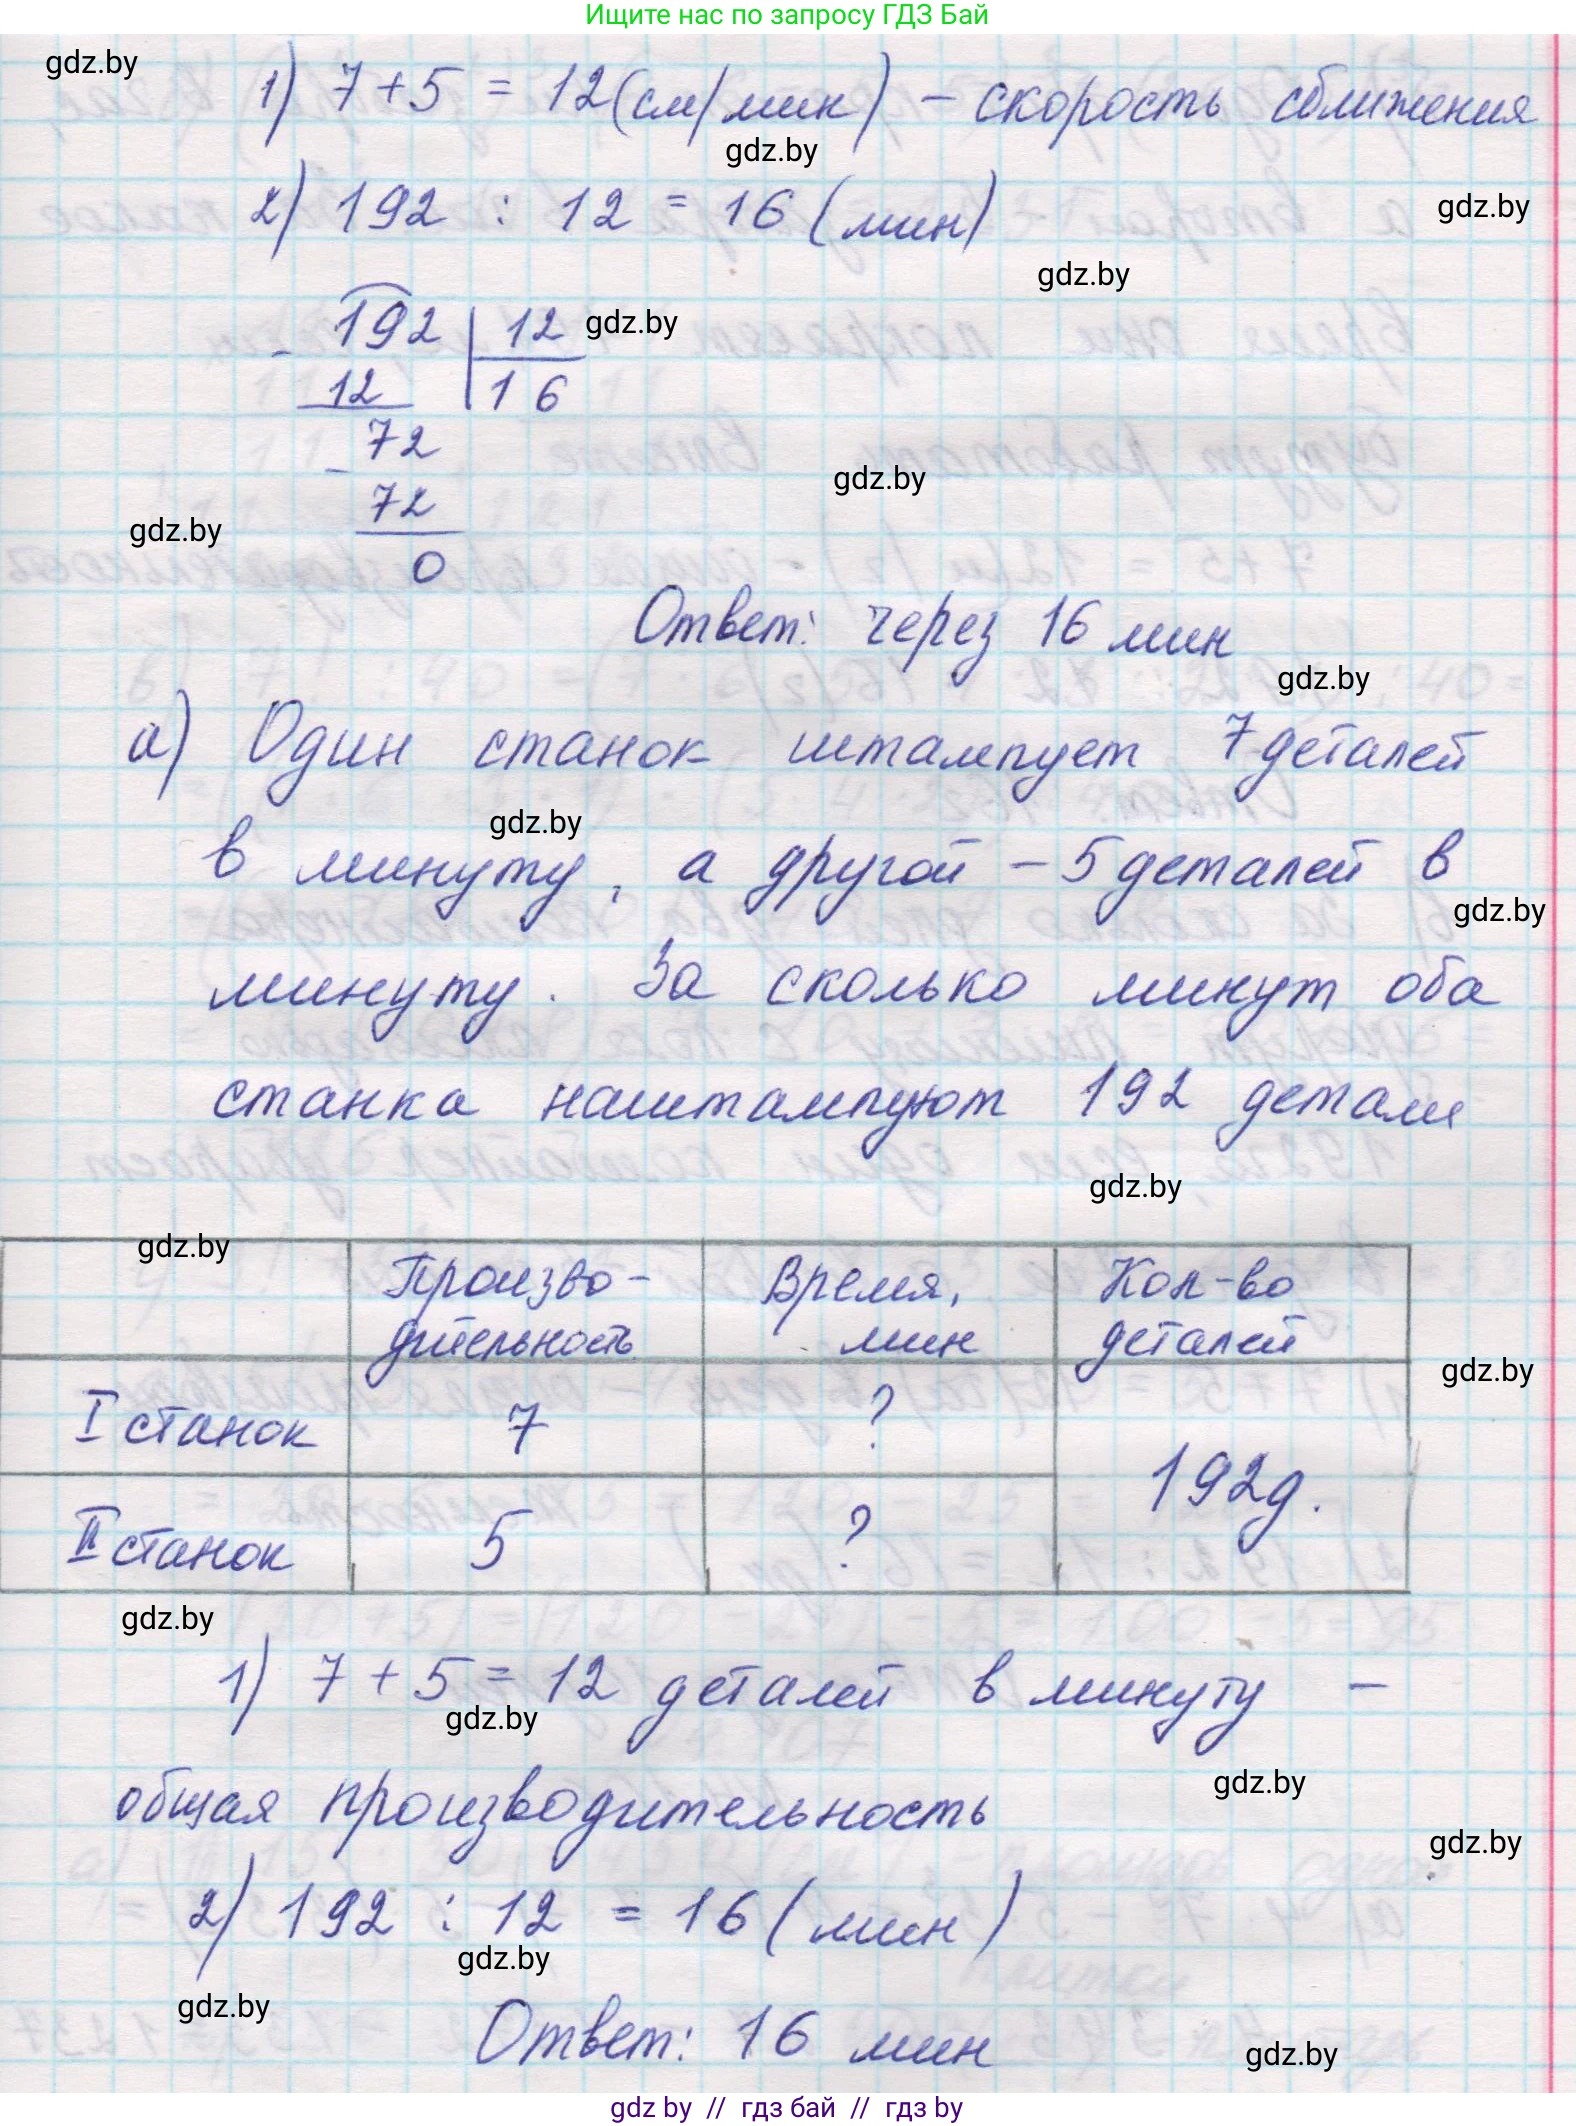 Ищите нас по запросу ГДЗ Бай
gdz.by
1) 7 + 5 = 12 (см/мин) – скорость сближения
gdz.by
2) 192 : 12 = 16 (мин)
gdz.by
gdz.by
192 | 12
gdz.by
- 12 | 16
72
gdz.by
- 72
gdz.by
0
Ответ: через 16 мин
gdz.by
а) Один станок штампует 7 деталей
gdz.by
в минуту, а другой – 5 деталей в
gdz.by
минуту. За сколько минут оба
станка наштампуют 192 детали
gdz.by
gdz.by
Произво-
дительность
Время,
мин
Кол-во
деталей
gdz.by
I станок 7 ?
192 д.
II станок 5 ?
gdz.by
1) 7 + 5 = 12 деталей в минуту –
gdz.by
gdz.by
общая производительность
gdz.by
2) 192 : 12 = 16 (мин)
gdz.by
gdz.by
Ответ: 16 мин
gdz.by
gdz by // гдз бай // gdz by